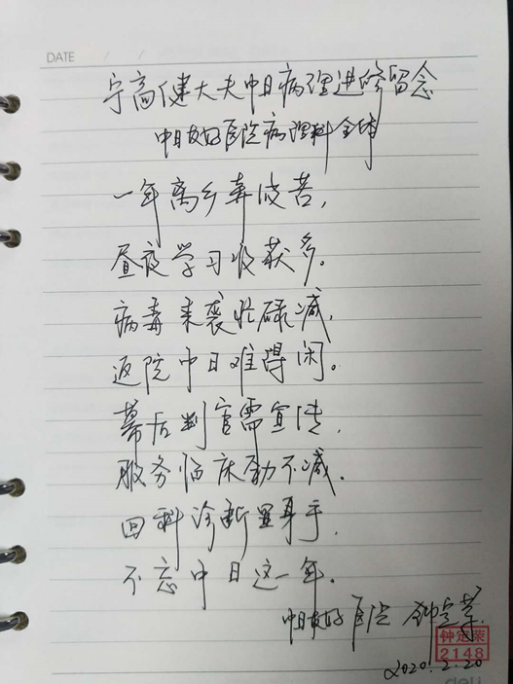 DATE / /
宁高健大夫中日病理进修留念
中日友好医院病理科全体
一年离乡奔波苦，
昼夜学习收获多。
病毒来袭忙碌减，
返院中日难得闲。
幕后判官需宣传，
服务临床勤不减。
回科诊断显身手，
不忘中日这一年。
中日友好医院 钟定荣
钟定荣
2148
2020.2.20
deli